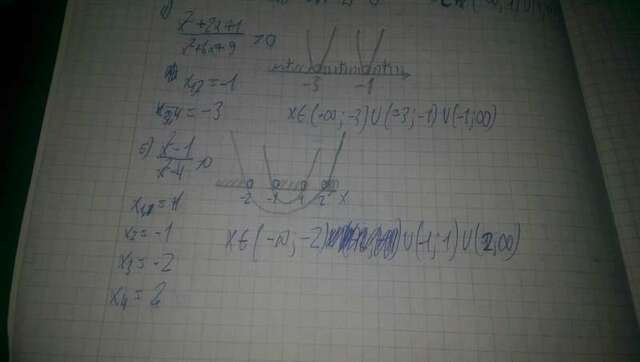 x²+2x+1
x²+6x+9 >0
-3 -1
x₁,₂ = -1
x₃,₄ = -3
x∈(-∞;-3)∪(-3;-1)∪(-1;∞)
б) x²-1
x²-4 >0
-2 -1 1 2 x
x₂ = -1
x∈(-∞;-2)∪(-1;1)∪(2;∞)
x₃ = -2
x₄ = 2